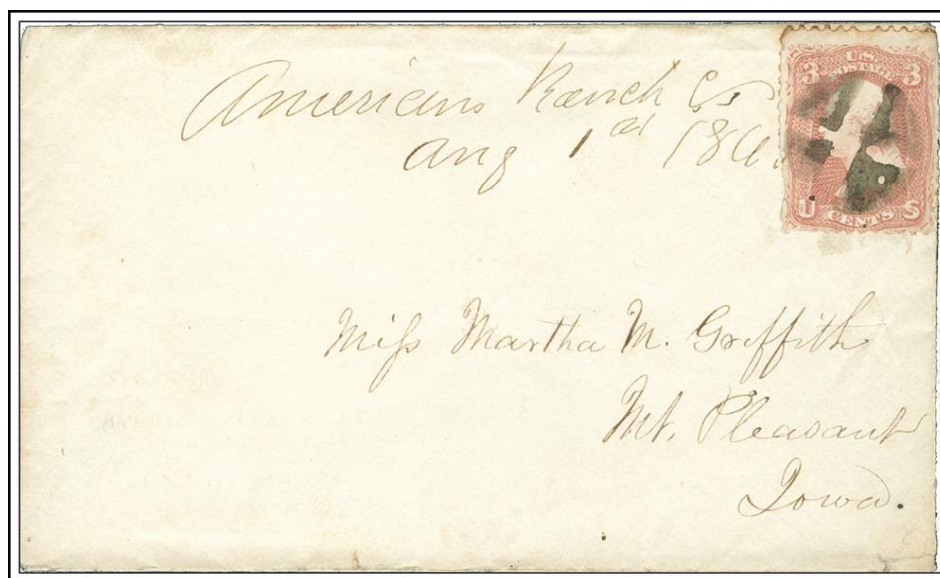 American Ranch C.T.
Aug 1st 186
U.S. POSTAGE
3 3
U CENTS S
Miss Martha M. Griffith
Mt. Pleasant
Iowa.